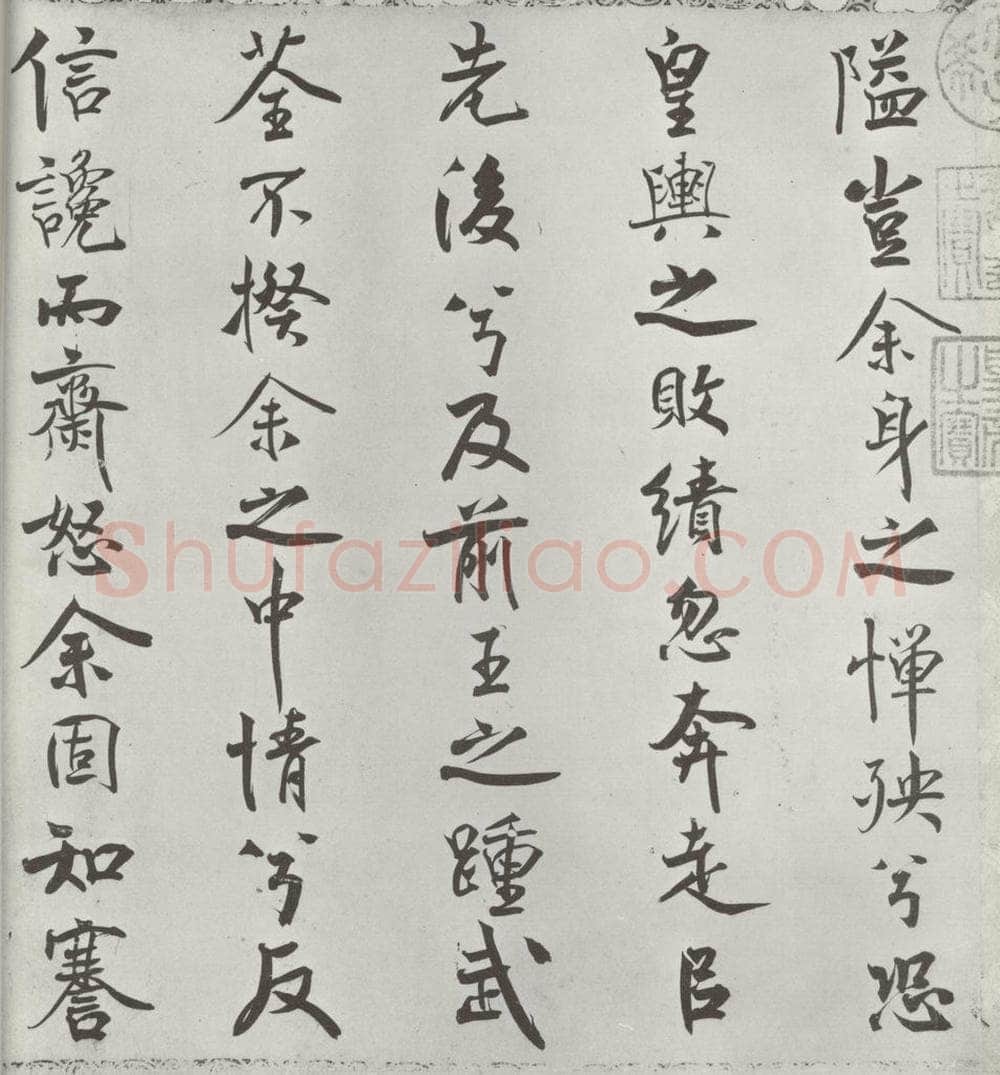 隘豈余身之憚殃兮恐
皇輿之敗績忽奔走㠯
先後兮及前王之踵武
荃不揆余之中情兮反
信讒而齋怒余固知謇
Shufaziliao.COM